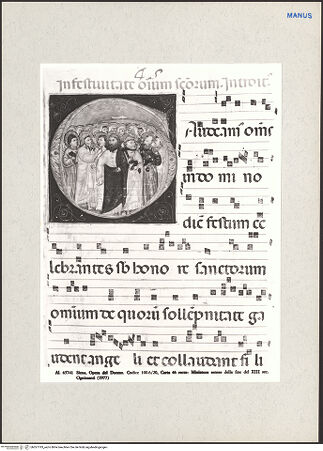 MANUS
In festivitate omium scorum. Introit.
audeamus oms
in do mi no
diē festum ce
lebrantes sb hono re sanctorum
omium de quorū sollēpnitate ga
udent ange li et collaudant fi li
Al. 6574) Siena, Opera del Duomo. Codice 1016/20, Carta 46 recto: Miniatura senese della fine del XIII sec.
(Agnissanti (1977)